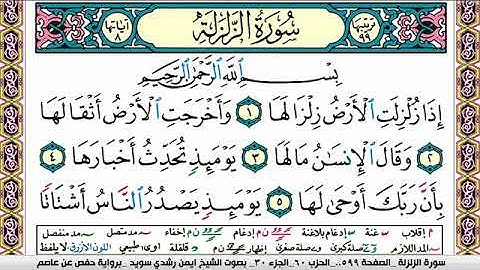 ترتيبها ٩٩ سُورَةُ الزَّلْزَلَةِ آياتها ٨
بِسْمِ ٱللَّهِ ٱلرَّحْمَٰنِ ٱلرَّحِيمِ
إِذَا زُلْزِلَتِ ٱلْأَرْضُ زِلْزَالَهَا ١ وَأَخْرَجَتِ ٱلْأَرْضُ أَثْقَالَهَا
٢ وَقَالَ ٱلْإِنسَٰنُ مَا لَهَا ٣ يَوْمَئِذٍ تُحَدِّثُ أَخْبَارَهَا ٤
بِأَنَّ رَبَّكَ أَوْحَىٰ لَهَا ٥ يَوْمَئِذٍ يَصْدُرُ ٱلنَّاسُ أَشْتَاتًا
م إقلاب غنة إدغام بلاغنة إدغام إخفاء مد متصل مد منفصل
المد اللازم صلة كبرى صلة صغرى إظهار قلقلة طبيعي اللون الأزرق لا يلفظ
سورة الزلزلة _الصفحة ٥٩٩_ الحزب ٦٠_ الجزء ٣٠_ بصوت الشيخ ايمن رشدي سويد _برواية حفص عن عاصم